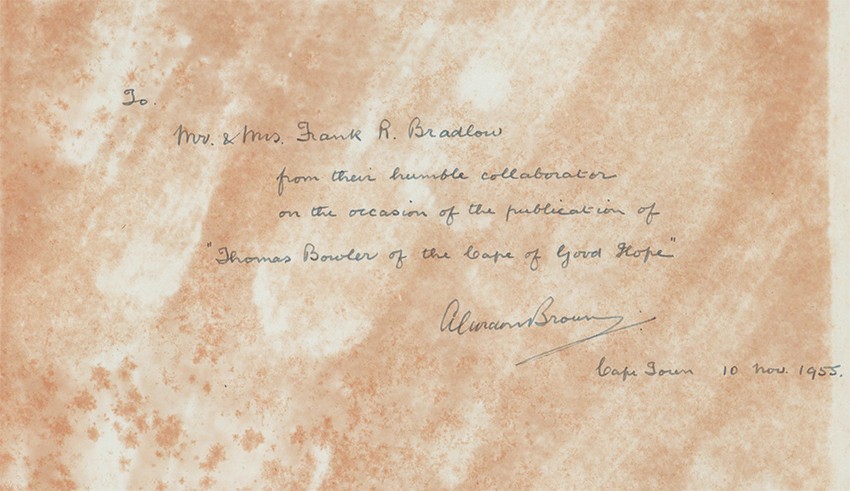 To.
Mr. & Mrs. Frank R. Bradlow
from their humble collaborator
on the occasion of the publication of
"Thomas Bowler of the Cape of Good Hope"
A Gordon Brown
Cape Town 10 Nov. 1955.